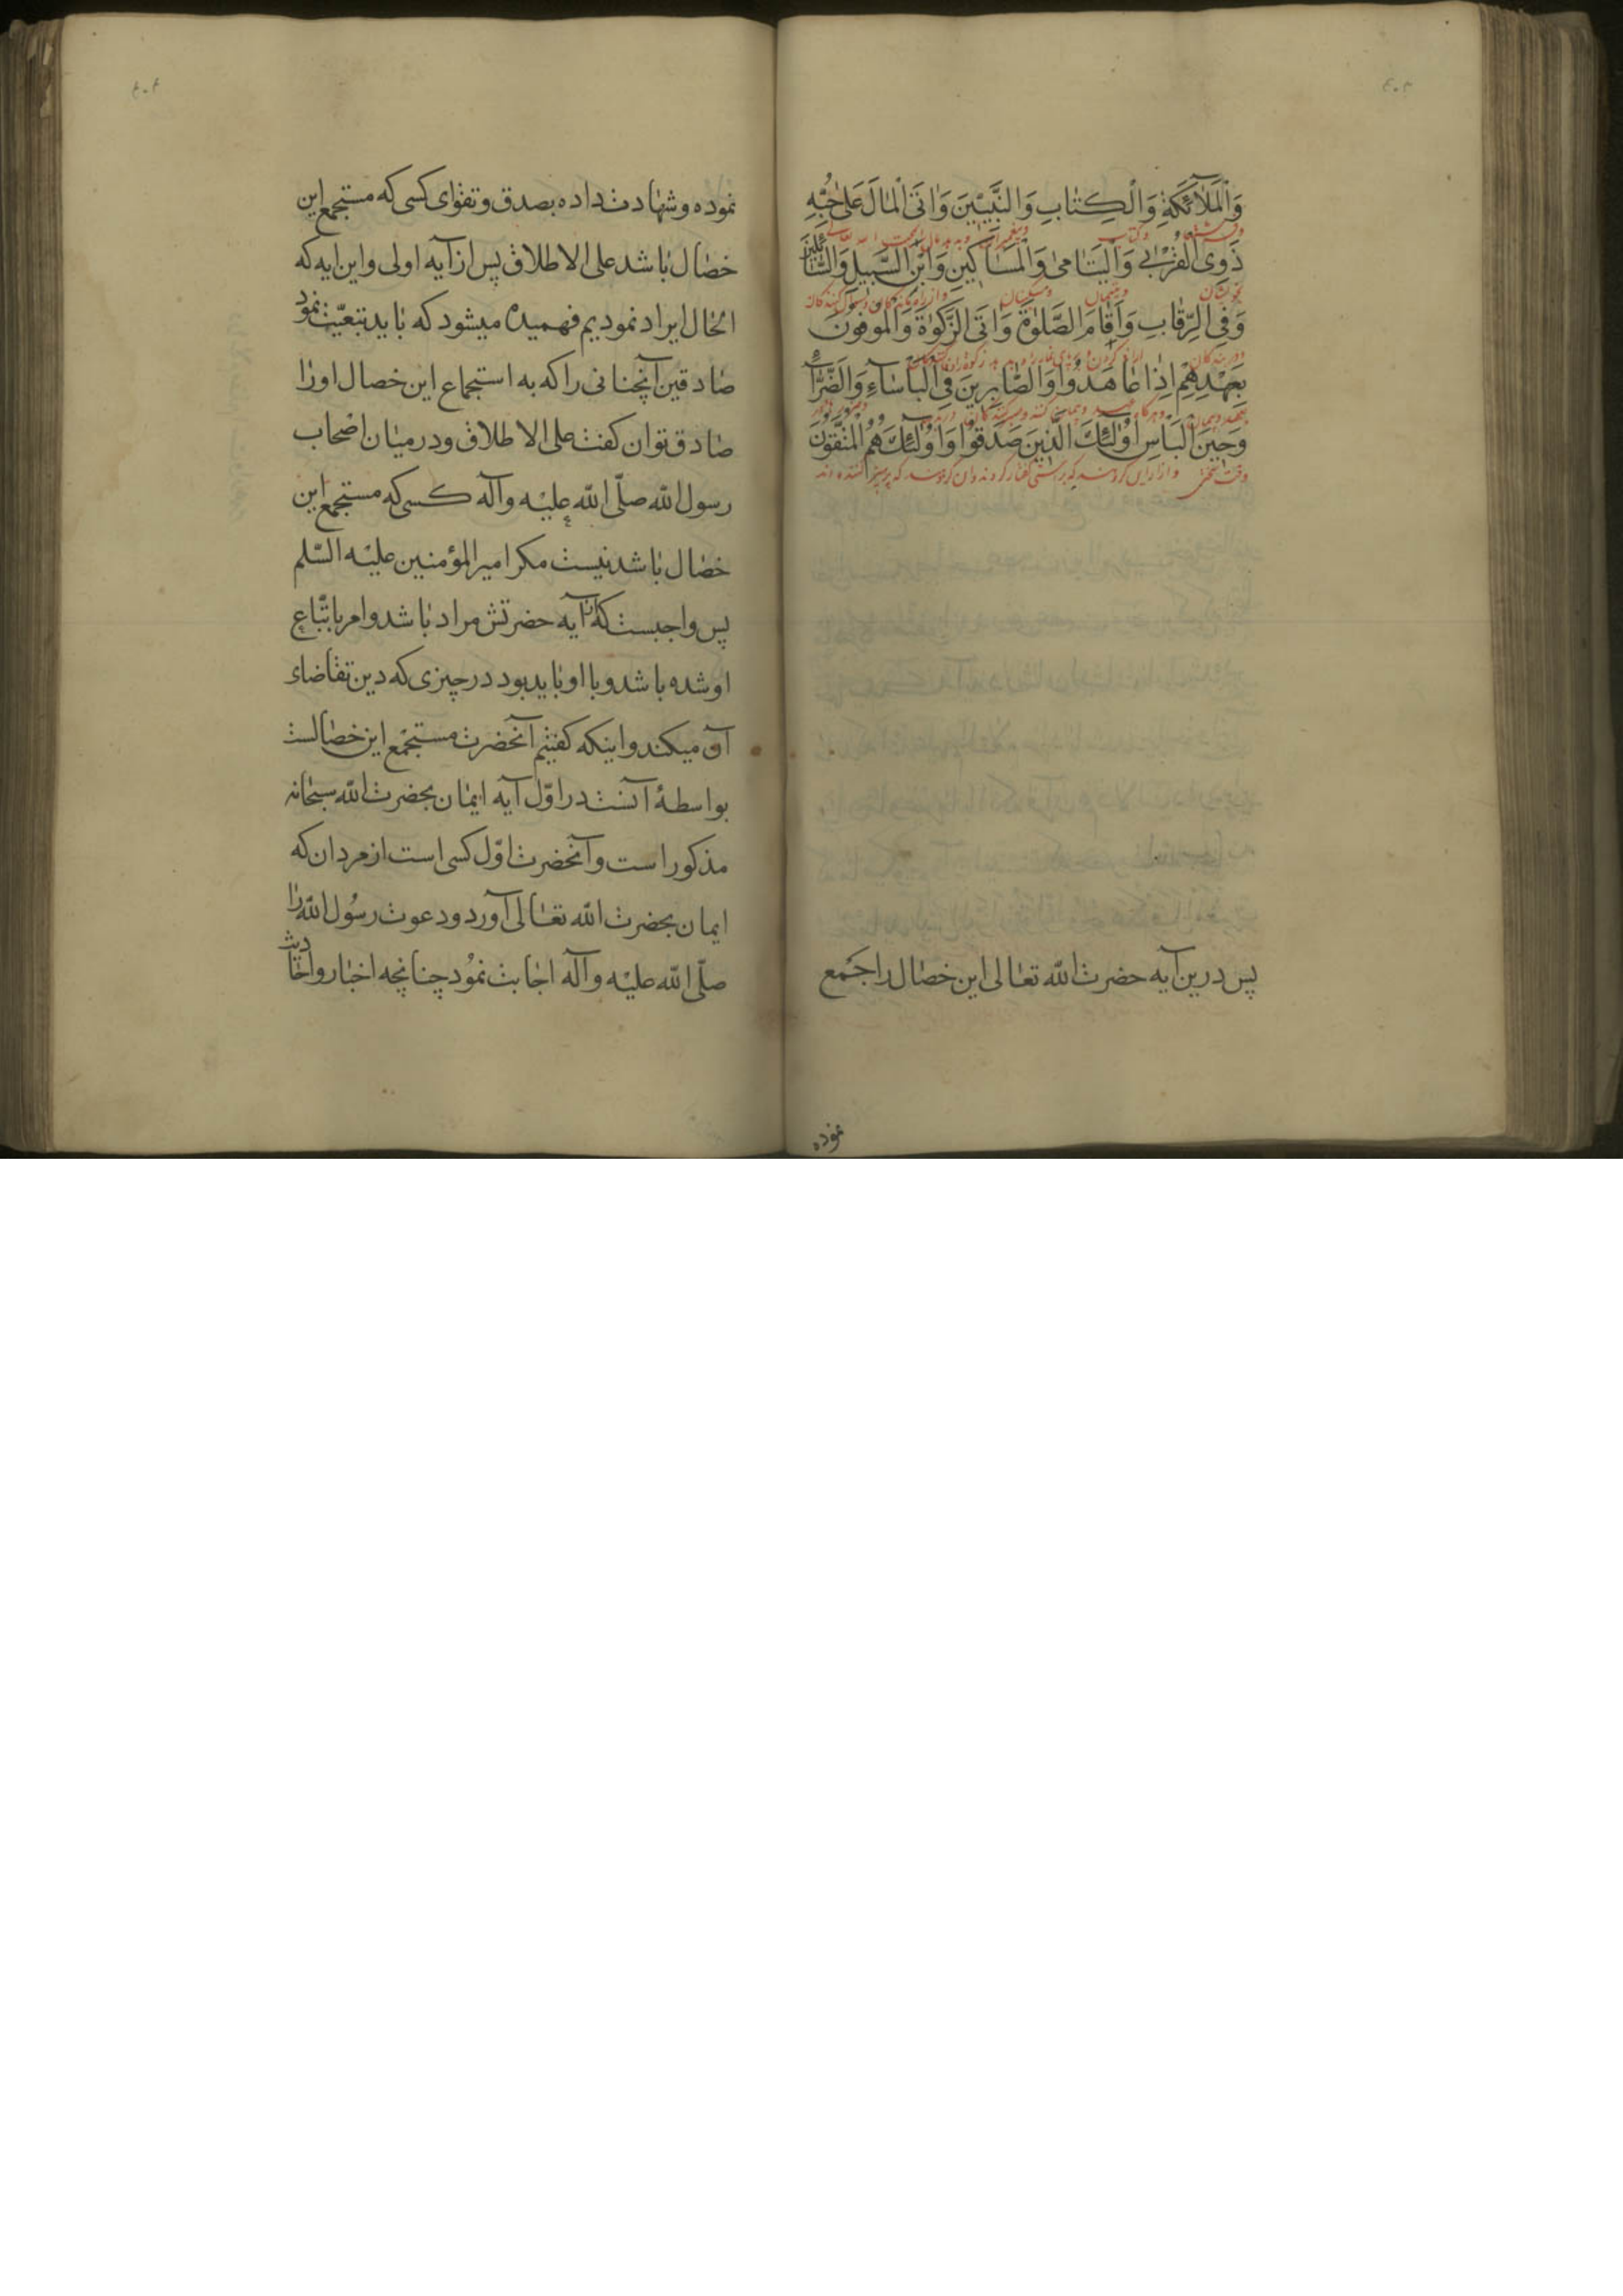 ٤٠٣
وَالْمَلَآئِكَةِ وَالْكِتَابِ وَالنَّبِيّينَ وَاٰتَى الْمٰالَ عَلىٰ حُبِّهِ
وفرشتها وکتاب وپیغمبران وبدهد مال را بمحبت الله تعالی
ذَوِى الْقُرْبٰى وَالْيَتٰامىٰ وَالْمَسٰاكينَ وَابْنَ السَّبيلِ وَالسّٰائِلينَ
بخویشان ویتیمان ومسکینان
وَفِى الرِّقٰابِ وَاَقٰامَ الصَّلوٰةَ وَاٰتَى الزَّكوٰةَ وَالْموُفوُنَ
ودر بندکان
بِعَهْدِهِمْ اِذٰا عٰاهَدوُا وَالصّٰابِرينَ فِى الْبَاْسٰآءِ وَالضَّرّٰآءِ
بعهد وپیمان
وَحينَ الْبَاْسِ اُولٰئِكَ الَّذينَ صَدَقوُا وَاوُلٰئِكَ هُمُ الْمُتَّقوُنَ
وقت سختی
پس درین آیه حضرت الله تعالی این خصال را جمع
نموده
٤٠٤
نموده وشهادت داده بصدق وتقوای کسی که مستجمع این
خصال باشد علی الاطلاق پس از آیه اولی واین ایه که
الحال ایراد نمودیم فهمیده میشود که باید تبعیّت نمود
صادقین آنچنانی را که به استجماع این خصال اورا
صادق توان کفت علی الاطلاق ودرمیان اصحاب
رسول الله صلّی الله علیه وآله کسی که مستجمع این
خصال باشد نیست مکر امیرالمؤمنین علیه السّلم
پس واجبست که از آیه حضرتش مراد باشد وامر باتّباع
اوشده باشد وبا او باید بود در چیزی که دین تقاضای
آن میکند واینکه کفتیم آنحضرت مستجمع این خصالست
بواسطهٔ آنست در اوّل آیه ایمان بحضرت الله سبحانه
مذکور است وآنحضرت اوّل کسی است از مردان که
ایمان بحضرت الله تعالی آورد ودعوت رسُول الله را
صلّی الله علیه وآله اجابت نموُد چنانچه اخبار واحادیث